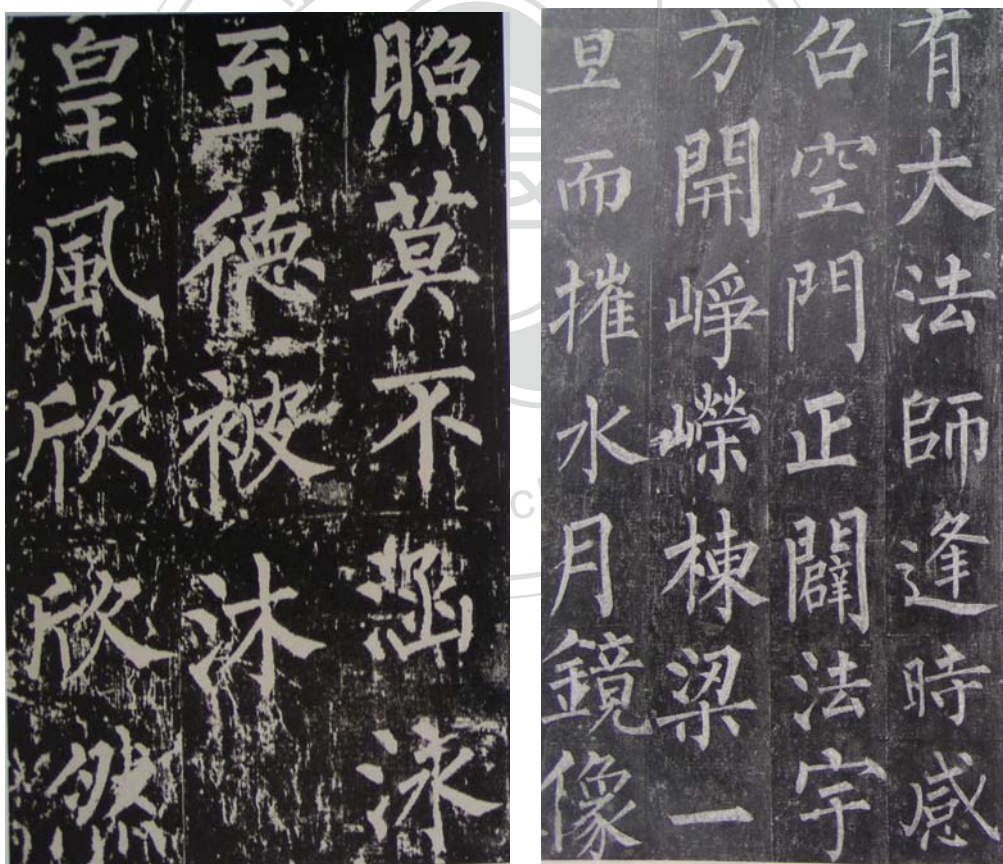 照莫不涵泳
至德被沐
皇風欣欣然
有大法師逢時感
召空門正闢法宇
方開崢嶸棟梁一
旦而摧水月鏡像